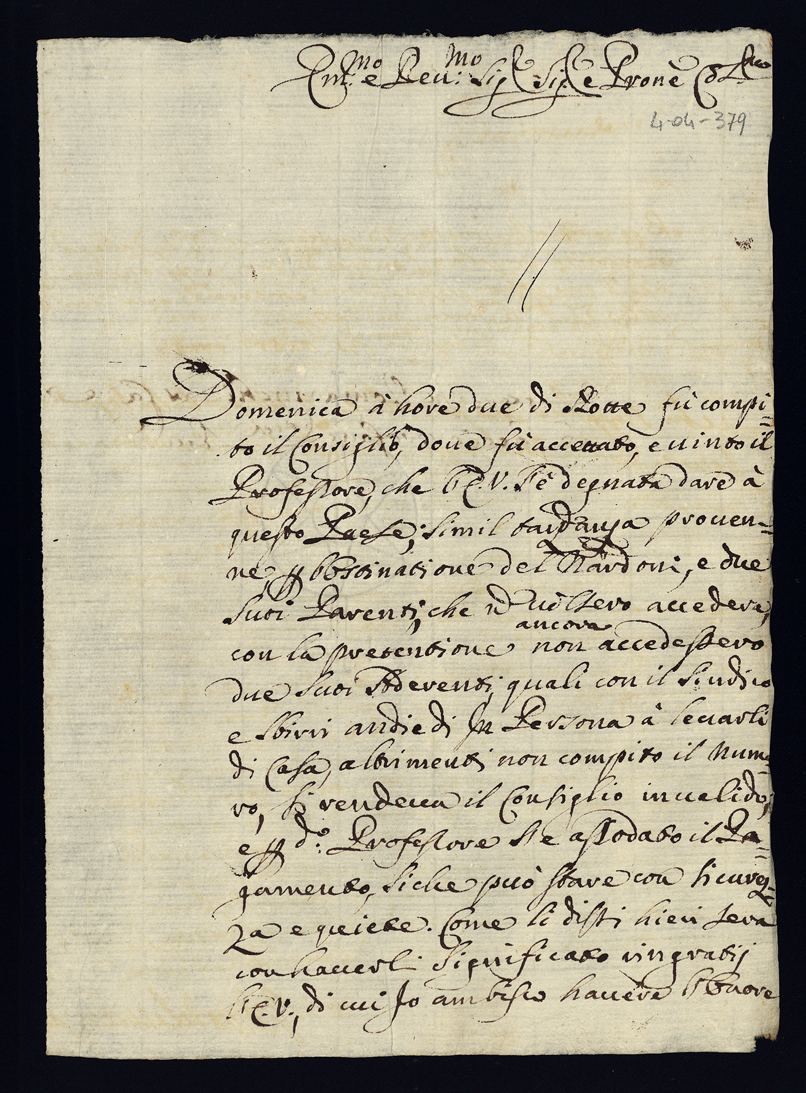 Em.mo e Reu.mo Sig.r Sig.r e Prone
4-04-379
Domenica à hore due di Notte fù compi=
to il Consiglio, doue fù accettato, e uinto il
Professore, che l'E.V. s'è degnata dare à
questo Paese; simil tardanza prouen=
ne p obstinatione del Nardoni, e due
suoi Parenti, che nõ uolsero accedere,
con la pretentione ancora non accedessero
due suoi Aderenti, quali con il Sindico
e sbirri andiedi Jn Persona à leuarli
di Casa, altrimenti non compito il num=
ro, si rendeua il Consiglio inualido;
e p d.o Professore si è assodato il Pa=
gamento, siche può stare con sicurez=
za e quiete. Come li dissi hieri sera
con hauerli significato ringratij
l'E.V., di cui Jo ambisco hauere